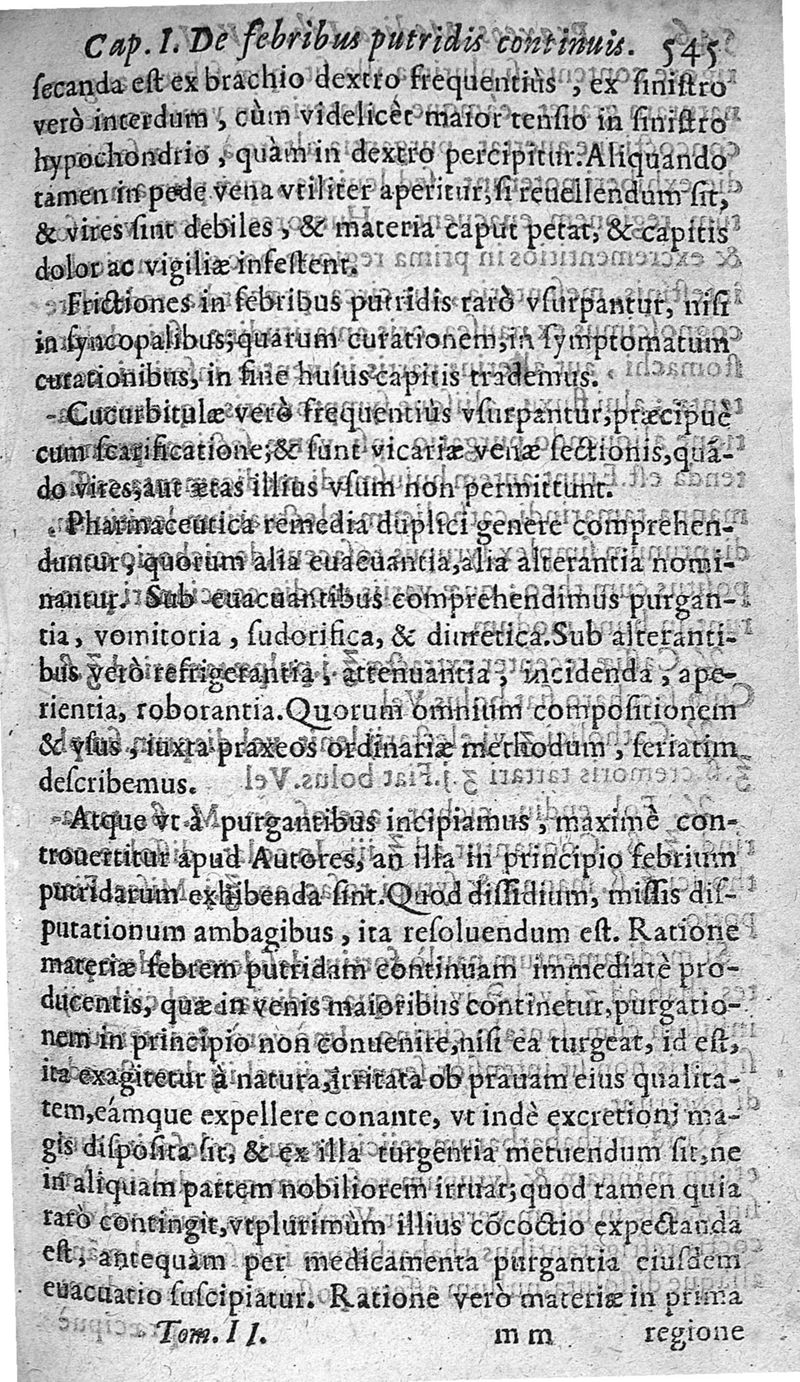 Cap. I. De febribus putridis continuis. 545
ſecanda eſt ex brachio dextro frequentiùs, ex ſiniſtro
verò interdum, cùm videlicèt maior tenſio in ſiniſtro
hypochondrio, quàm in dextro percipitur. Aliquando
tamen in pede vena vtiliter aperitur, ſi reuellendum ſit,
& vires ſint debiles, & materia caput petat, & capitis
dolor ac vigiliæ infeſtent.
Frictiones in febribus putridis rarò vſurpantur, niſi
in ſyncopalibus; quarum curationem, in ſymptomatum
curationibus, in fine huius capitis trademus.
Cucurbitulæ verò frequentius vſurpantur, præcipuè
cum ſcarificatione; & ſunt vicariæ venæ ſectionis, quã-
do vires, aut ætas illius vſum non permittunt.
Pharmaceutica remedia duplici genere comprehen-
duntur, quorum alia euacuantia, alia alterantia nomi-
nantur. Sub euacuantibus comprehendimus purgan-
tia, vomitoria, ſudorifica, & diuretica. Sub alteranti-
bus verò refrigerantia, attenuantia, incidenda, ape-
rientia, roborantia. Quorum omnium compoſitionem
& vſus, iuxta praxeos ordinariæ methodum, ſeriatim
deſcribemus.
Atque vt à purgantibus incipiamus, maximè con-
trouertitur apud Autores, an illa in principio febrium
putridarum exhibenda ſint. Quod diſſidium, miſſis diſ-
putationum ambagibus, ita reſoluendum eſt. Ratione
materiæ febrem putridam continuam immediatè pro-
ducentis, quæ in venis maioribus continetur, purgatio-
nem in principio non conuenire, niſi ea turgeat, id eſt,
ita exagitetur à natura, irritata ob prauam eius qualita-
tem, eámque expellere conante, vt indè excretioni ma-
gis diſpoſita ſit, & ex illa turgentia metuendum ſit, ne
in aliquam partem nobiliorem irruat; quod tamen quia
rarò contingit, vtplurimùm illius cõcoctio expectanda
eſt, antequàm per medicamenta purgantia eiuſdem
euacuatio ſuſcipiatur. Ratione verò materiæ in prima
Tom. II. m m regione